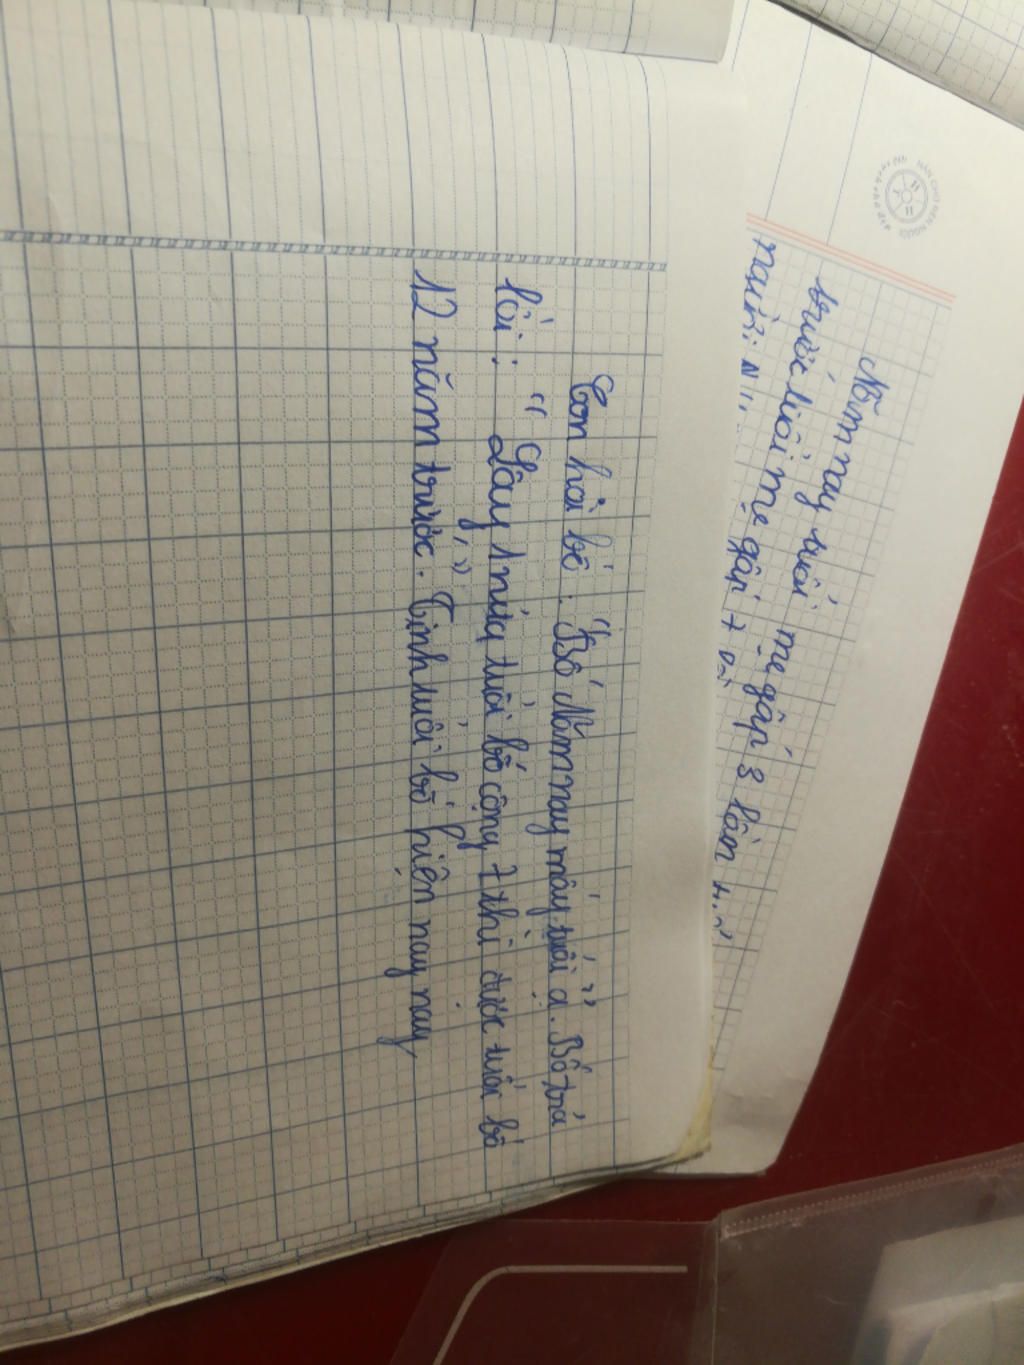 Năm nay tuổi mẹ gấp 3 lần
trước tuổi mẹ gấp 7
Con hỏi bố : "Bố Năm nay mấy tuổi ạ". Bố trả
lời : " Lấy 1 nửa tuổi bố cộng 7 thì được tuổi bố
12 năm trước". Tính tuổi bố hiện nay